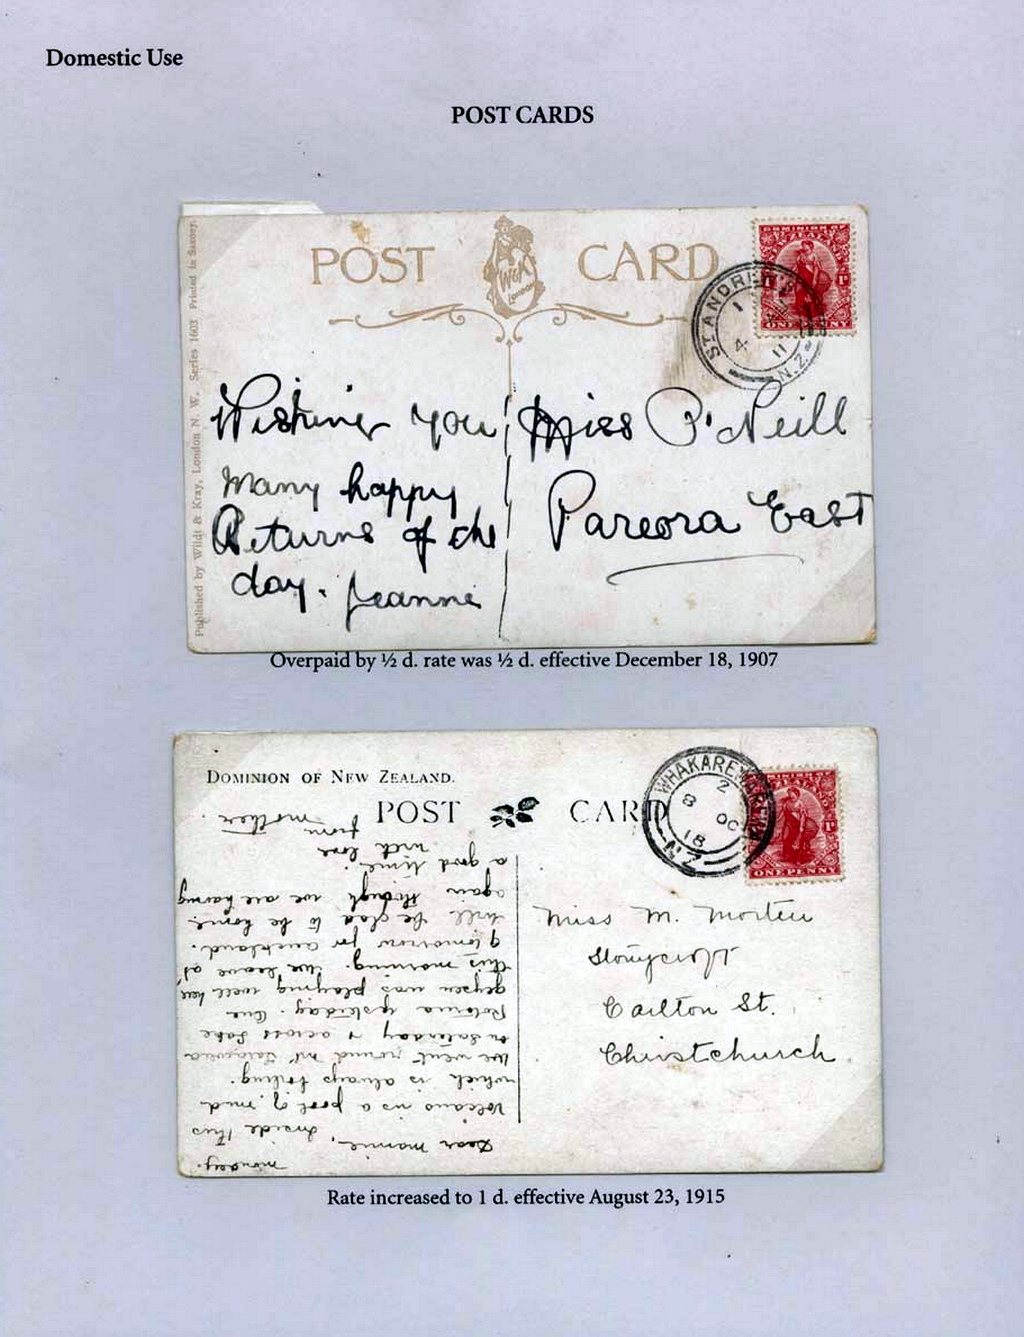 Domestic Use
POST CARDS
POST CARD
W&K
London
DOMINION OF
ZEALAND
ONE PENNY
ST. ANDREWS
1
4
11
N.Z.
Published by Wildt & Kray, London N. W. Series 1603 Printed in Saxony.
Wishing you
Many happy
Returns of the
day. Jeanne
Miss O'Neill
Pareora East
Overpaid by ½ d. rate was ½ d. effective December 18, 1907
DOMINION OF NEW ZEALAND.
POST CARD
WHAKAREWAREWA
2
8 OC
18
N.Z.
ONE PENNY
Monday.
Dear Mamie,
Inside this
Volcano is a pool of mud
which is always boiling.
We went round Mt Tarawera
on Saturday & across Lake
Rotorua yesterday. One
geyser was playing well here
this morning. We leave
tomorrow for Auckland.
Will be glad to be home
again though we are having
a good time.
with love
from
Mother.
Miss M. Morten
Stonycroft
Carlton St.
Christchurch
Rate increased to 1 d. effective August 23, 1915